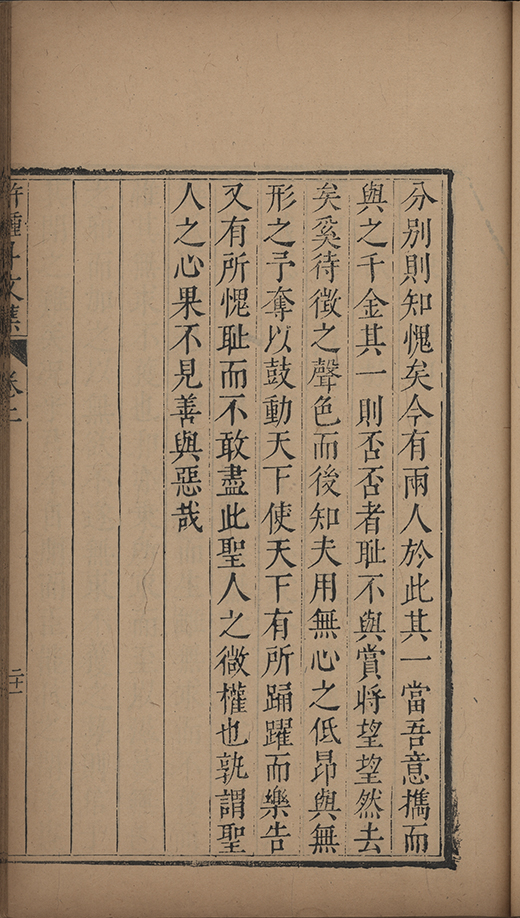 分别則知愧矣今有兩人於此其一當吾意攜而
與之千金其一則否否者耻不與賞將望望然去
矣奚待徵之聲色而後知夫用無心之低昂與無
形之予奪以鼓動天下使天下有所踊躍而樂告
又有所愧耻而不敢盡此聖人之微權也孰謂聖
人之心果不見善與惡哉
鍾斗文集 卷二
二十一